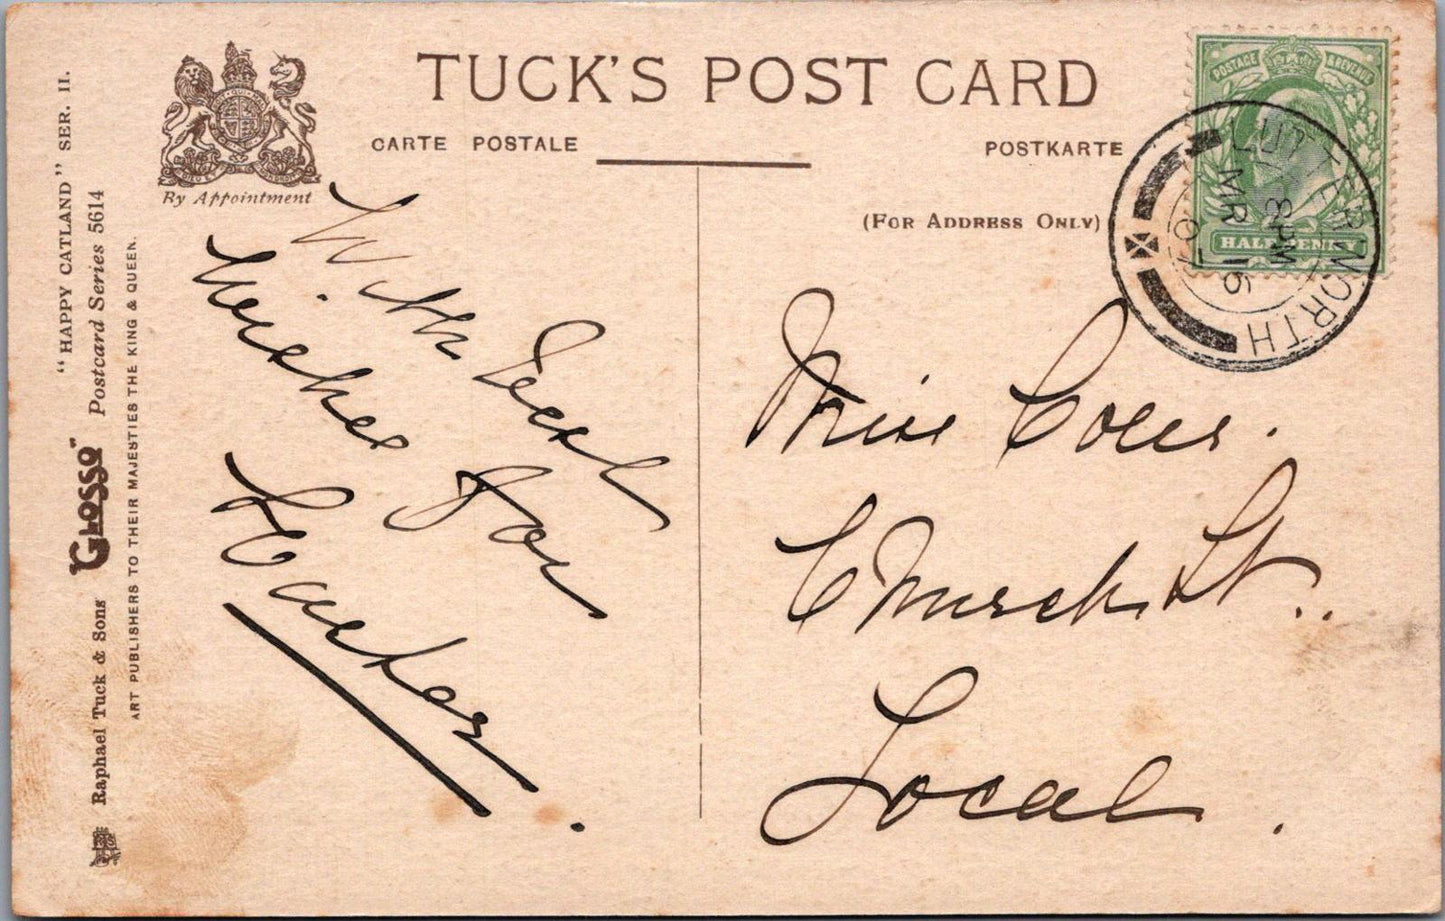 TUCK'S POST CARD
CARTE POSTALE
POSTKARTE
By Appointment
(FOR ADDRESS ONLY)
POSTAGE & REVENUE
HALFPENNY
LUTTERWORTH
8 PM
MR 16
07
"HAPPY CATLAND" SER. II.
Raphael Tuck & Sons "GLOSSO" Postcard Series 5614
ART PUBLISHERS TO THEIR MAJESTIES THE KING & QUEEN.
With Best
wishes for
Easter.
Miss Coles.
Church St..
Local.